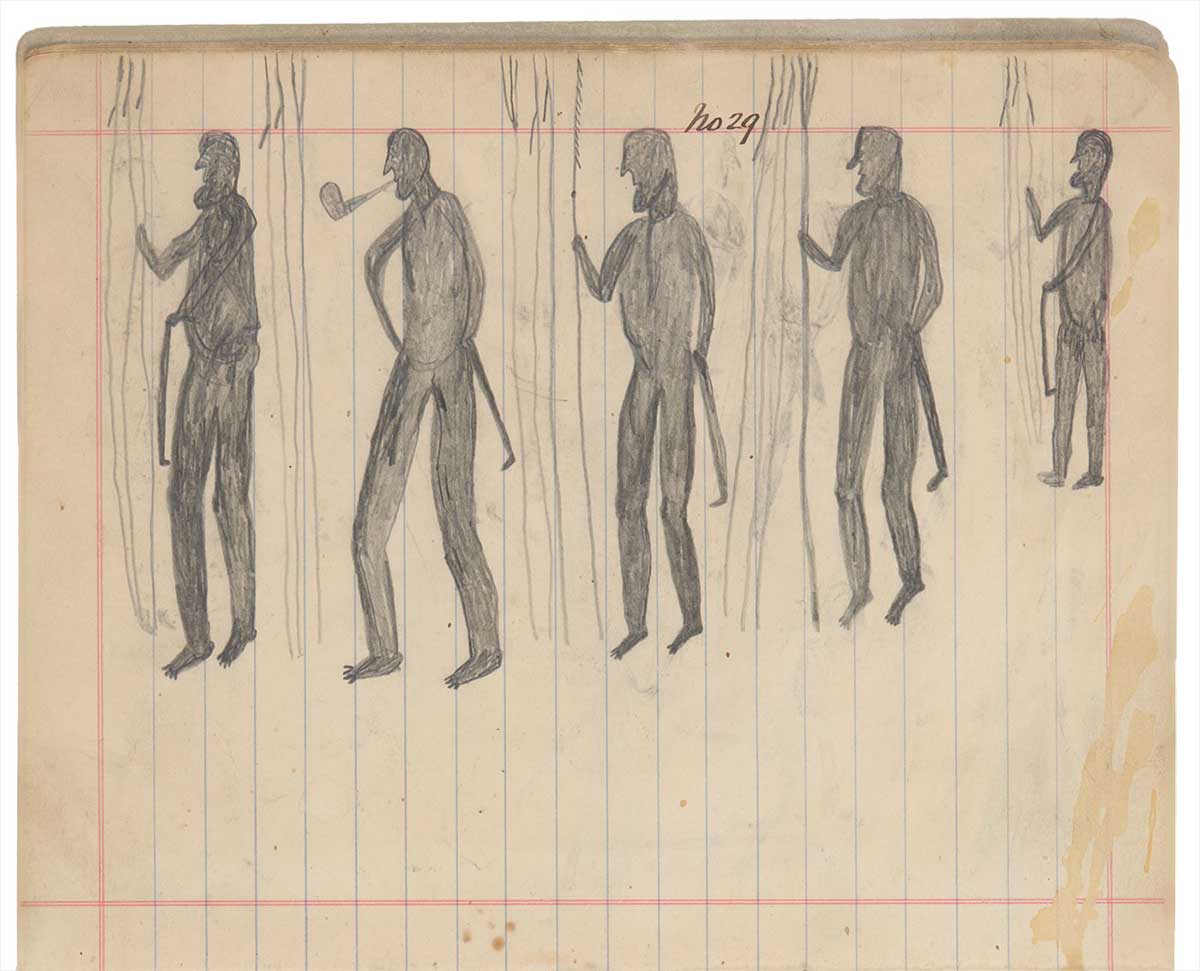 no 29